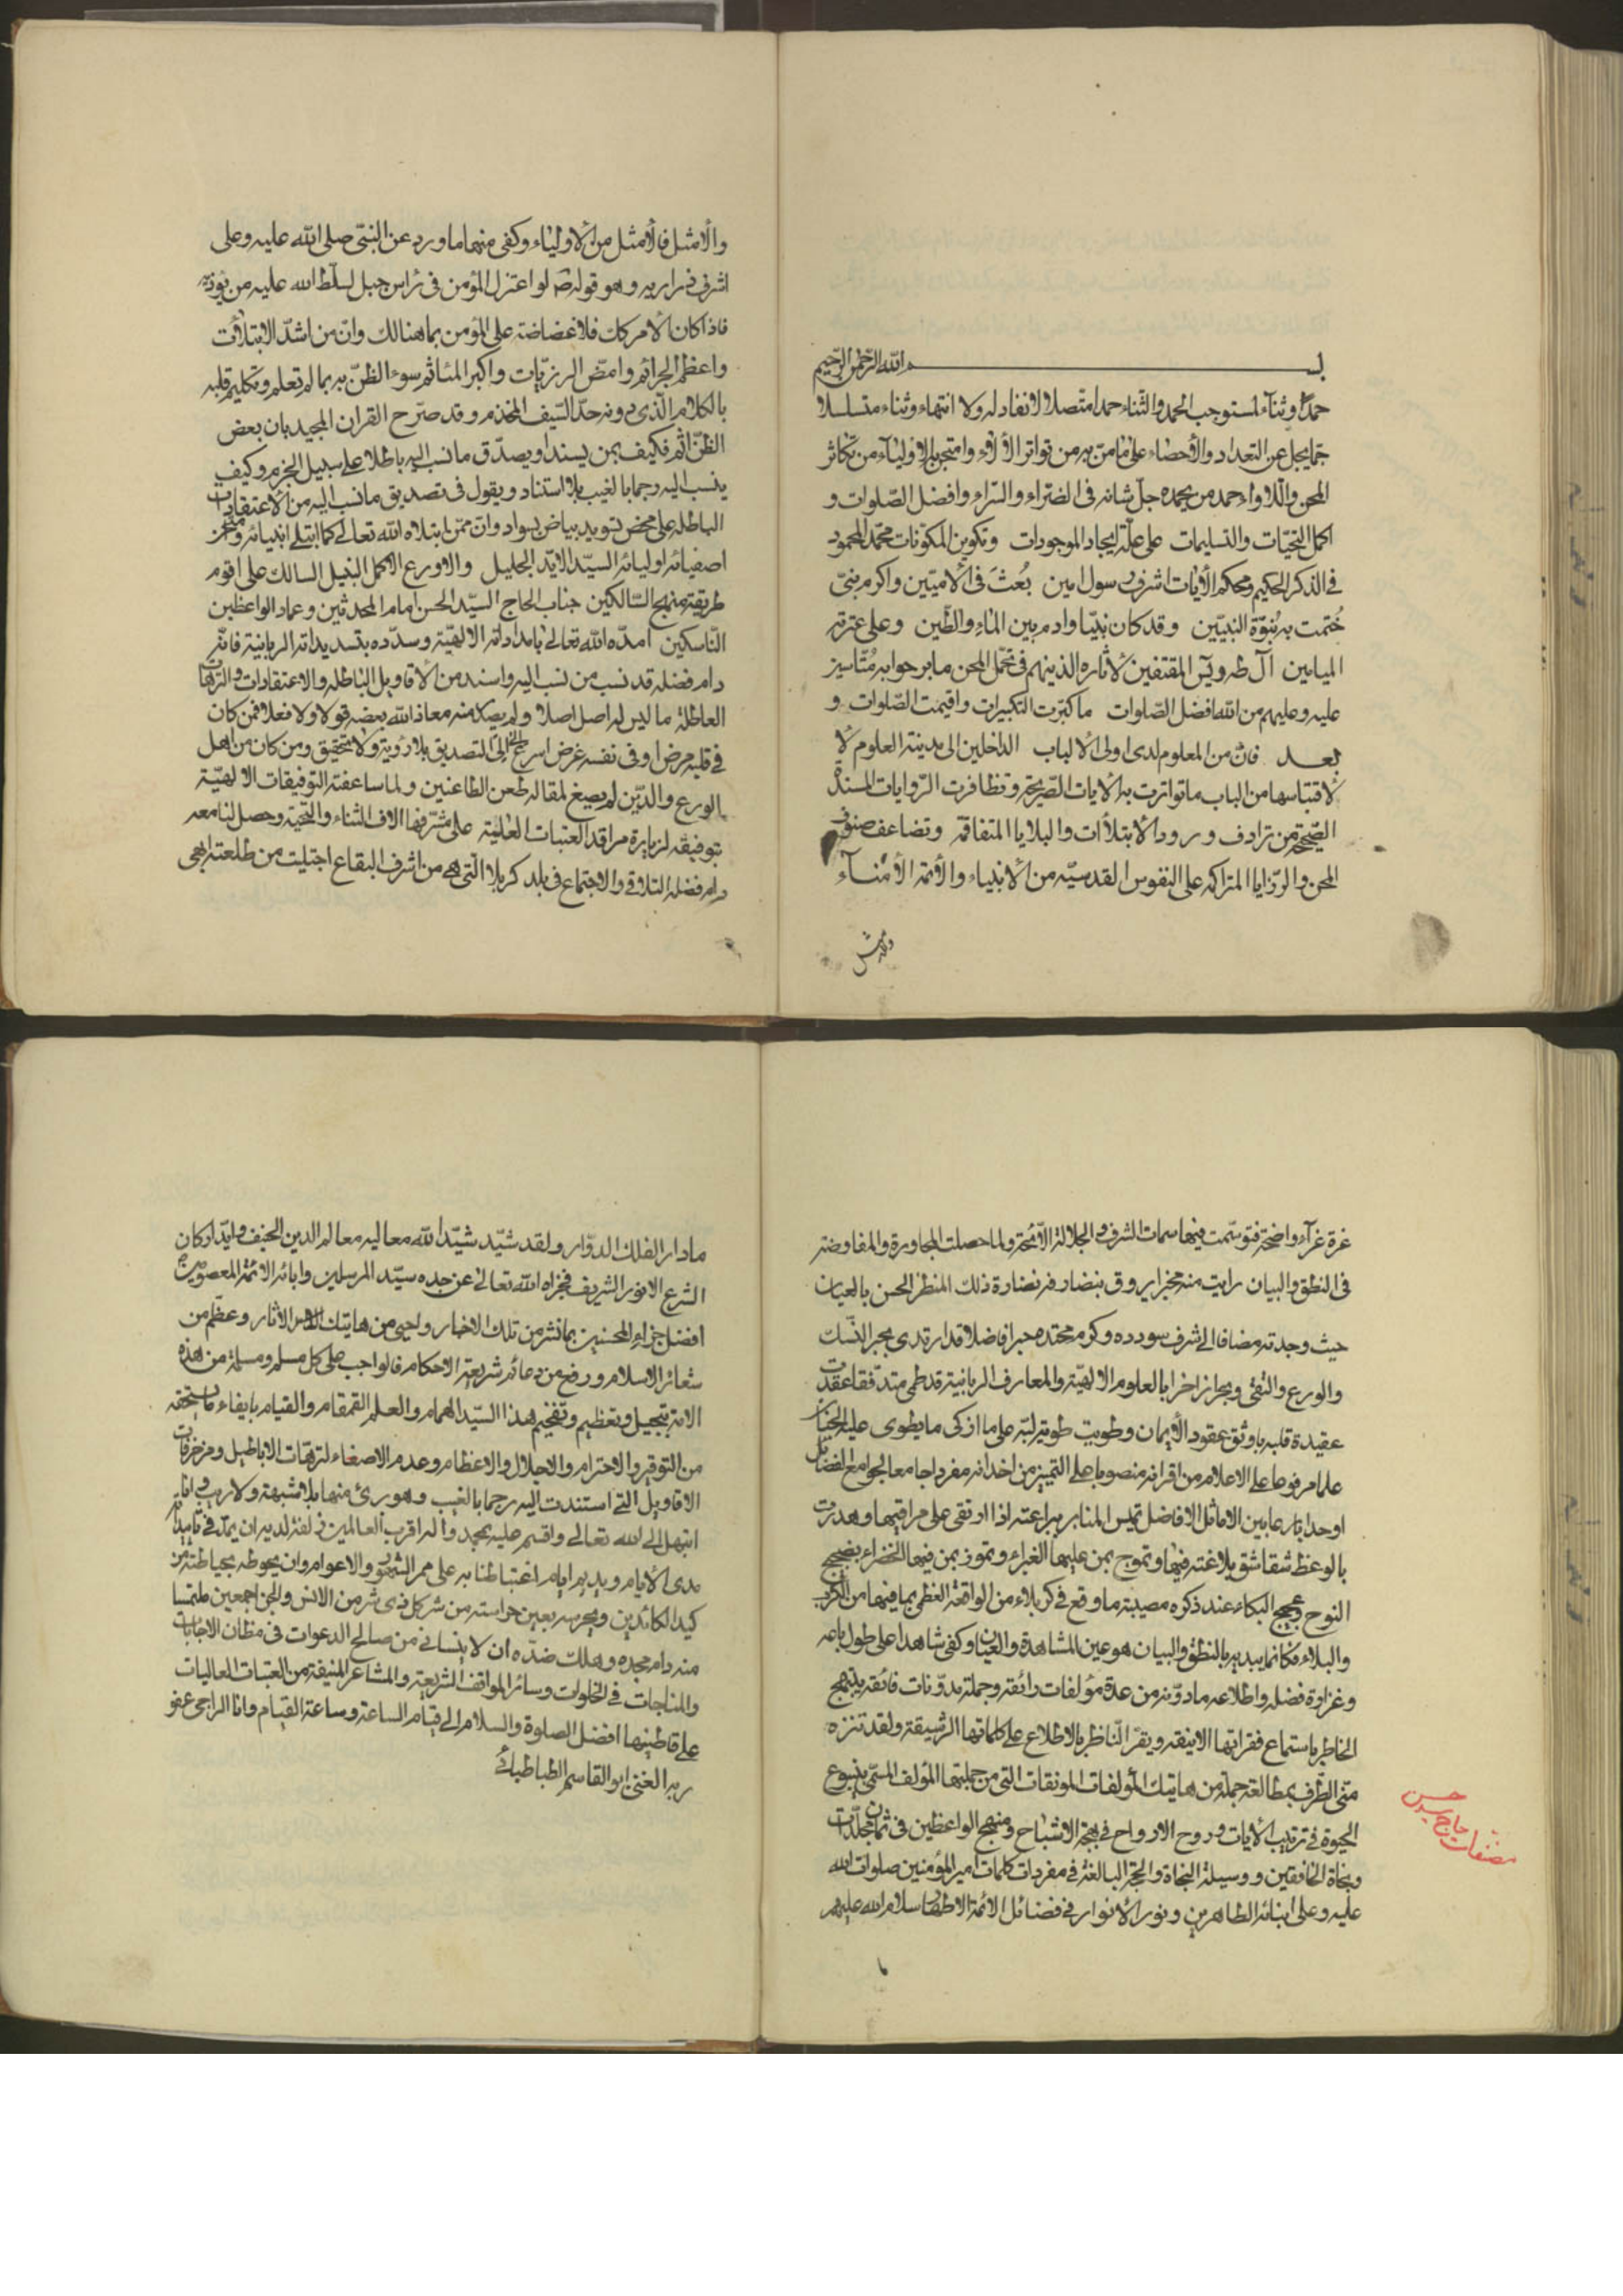 بسم الله الرحمن الرحيم
حمدًا وثناءً لمستوجب الحمد والثناء حمدا متصلا لا نفاد له ولا انتهاء وثناء متسلسلا
جمّا يجل عن التعداد والأحصاء على ما منّ به من تواتر الألاء وامتحن به الاولياء من تكاثر
المحن واللاواء احمد من بحمده جلّ شانه فى الضراء والسراء وافضل الصلوات و
اكمل التحيّات والتسليمات على علّة ايجاد الموجودات وتكوين المكونات محمّد المحمود
فى الذكر الحكيم ومحكم الأيات اشرف رسول امين بُعثَ فى الأميّين واكرم نبىّ
خُتمت به نبوّة النبيّين وقد كان نبيّا وادم بين الماء والطّين وعلى عترته
الميامين آل طه ويٓس المقتفين لأثاره الذينهم فى تحمّل المحن ما برحوا به مُتأسين
عليه وعليهم من الله افضل الصّلوات ما كبّرت التكبيرات واقيمت الصّلوات و
بعد فانّ من المعلوم لدى اولى الألباب الداخلين الى مدينة العلوم لا
لاقتباسها من الباب ما تواترت به الأيات الصّريحة وتظافرت الرّوايات المسندة
الصّحيحة من ترادف ورود الابتلاآت والبلايا المتفاقمة وتضاعف صنوف
المحن والرّزايا المتراكمه على النفوس القدسيّه من الأنبياء والأئمّة الأمناء
والأمثل
والأمثل فالأمثل من الأولياء وكفى منها ما ورد عن النبىّ صلى الله عليه وعلى
اشرف ذراريه وهو قوله ص لو اعتزل المؤمن فى رأس جبل لسلّط الله عليه من يؤذيه
فاذا كان الأمر كك فلا غضاضة على المؤمن بما هنالك وانّ من اشدّ الابتلاآت
واعظم الجرائم وامضّ الرزيّات واكبر المئاثم سوء الظنّ به بما لم تعلم وتكليم قلبه
بالكلام الّذى دونه حدّ السّيف المخذم وقد صرّح القران المجيد بان بعض
الظنّ اثم فكيف بمن يسند او يصدّق ما نسب اليه باطلا على سبيل الجزم وكيف
ينسب اليه رجما بالغيب بلا استناد ويقول فى تصديق ما نسب اليه من الاعتقادات
الباطله على محض تسويد بياض بسواد وانّ ممّن ابتلاه الله تعالى كما ابتلى انبيائه
اصفيائه اوليائه السيّد الايّد الجليل والاورع الاكمل النبيل السالك على اقوم
طريقة منهج السّالكين جناب الحاج السيّد الحسن امام المحدثين وعماد الواعظين
النّاسكين امدّه الله تعالى بامداداته الالهيّة وسدّده بتسديداته الربانية فانّه
دام فضله قد نسب من نسب اليه واسند من الأقاويل الباطله والاعتقادات والترهات
العاطلة ما ليس له اصل اصلا ولم يصدر منه معاذ الله بعضه قولا ولا فعلا فمن كان
فى قلبه مرض او فى نفسه غرض اسرع الى التصديق بلا رؤية ولا تحقيق ومن كان من اهل
الورع والدّين لم يصغ لمقاله طعن الطاعنين ولما ساعفته التوفيقات الالهيّة
بتوفيقه لزيارة مراقد العتبات العليّة على مشرّفها الاف الثناء والتحيّة وحصل لنا معه
دام فضله التلاقى والاجتماع فى بلد كربلا الّتى هى من اشرف البقاع اجتليت من طلعته ابهى
غرة غرآء واضحة فتوسّمت فيها سمات الشرف والجلالة اللائحة ولما حصلت المجاورة والمفاوضة
فى النطق والبيان رايت منه مخبرا يروق بنضارته نضارة ذلك المنظر الحسن بالعيان
حيث وجدته مضافا الى شرف سودده وكرم محتده حبرا فاضلا قد ارتدى بحبر النّسك
والورع والتقى وبحرا زاخرا بالعلوم الالهيّة والمعارف الربانية قد طمى متدفّقا عقدت
عقيدة قلبه باوثق عقود الأيمان وطويت طويّة لبّه على ما ازكى ما يطوى عليه الجنان
علما مرفوعا على الاعلام من اقرانه منصوبا على التمييز من اخدانه مفردا جامعا لجوامع الفضائل
اوحدا بارعا بين الاماثل الافاضل تميس المنابر ببراعته اذا ارتقى على مراقيها وهدرت
بالوعظ شقاشق بلاغته فيها وتموج بمن عليها الغبراء وتمور بمن فيها الخضراء بضجيج
النوح وعجيج البكاء عند ذكره مصيبة ما وقع فى كربلاء من الواقعة العظمى بما فيها من الكرب
والبلاء فكانما يبديه بالنطق والبيان هو عين المشاهدة والعيان وكفى شاهدا على طول باعه
وغزارة فضله واطلاعه ما دوّنه من عدة مؤلفات رائقة وجملة مدوّنات فائقه يبتهج
الخاطر باستماع فقراتها الانيقه ويقرّ النّاظر بالاطلاع على كلماتها الرشيقة ولقد تنزه
منّى الطّرف بمطالعة جملة من هاتيك المؤلفات المونقات التى من جملتها المؤلف المسمّى بينبوع
الحيوة فى ترتيب الأيات وروح الارواح فى بهجة الاشباح ومنهج الواعظين فى ثمان مجلّدات
ونجاة الخافقين ووسيلة النجاة والحجة البالغة فى مفردات كلمات امير المؤمنين صلوات الله
عليه وعلى ابنائه الطاهرين ونور الأنوار فى فضائل الائمة الاطهار سلام الله عليهم
مصنفات حاج سيد حسن
ما دار الفلك الدوّار ولقد شيّد شيّد الله معاليه معالم الدين الحنيف وايّد اركان
الشرع الانور الشريف فجزاه الله تعالى عن جده سيّد المرسلين وابائه الائمة المعصومين
افضل جزاء المحسنين بما نشر من تلك الاخبار واحيى من هاتيك الاثار وعظّم من
شعائر الاسلام ورفع من دعائم شريعة الاحكام فالواجب على كل مسلم ومسلمة من هذه
الامة تبجيل وتعظيم وتفخيم هذا السيّد الهمام والعلم القمقام والقيام بايفاء ما يستحقه
من التوقير والاحترام والاجلال والاعظام وعدم الاصغاء لترهات الاباطيل ومزخرفات
الاقاويل التى استندت اليه رجما بالغيب وهو برئ منها بلا شبهة ولا ريب وانا
ابتهل الى الله تعالى واقسم عليه بمحمد واله اقرب العالمين زلفة لديه ان يمدّ فى تاييده
مدى الأيام ويديم ايام اغتباطنا به على ممر الشهور والاعوام وان يحوطه بحياطته من
كيد الكائدين ويحرسه بعين حراسته من شر كل ذى شر من الانس والجن اجمعين ملتمسا
منه دام مجده وهلك ضدّه ان لا ينسانى من صالح الدعوات فى مظان الاجابات
والمناجات فى الخلوات وسائر المواقف الشريفة والمشاعر المنيفة من العتبات العاليات
على قاطنيها افضل الصلوة والسلام الى قيام الساعة وساعة القيام وانا الراجى عفو
ربه الغنى ابو القاسم الطباطبائى